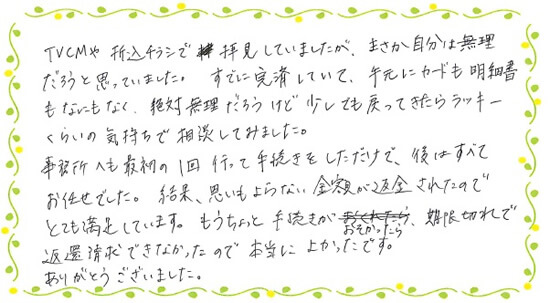 TVCMや折込チラシで拝見していましたが、まさか自分は無理
だろうと思っていました。 すでに完済していて、手元にカードも明細書
もなにもなく、絶対無理だろうけど少しでも戻ってきたらラッキー
くらいの気持ちで相談してみました。
事務所へも最初の1回行って手続きをしただけで、後はすべて
お任せでした。 結果、思いもよらない金額が返金されたので
とても満足しています。 もうちょっと手続きがおそかったら、期限切れで
返還請求できなかったので本当によかったです。
ありがとうございました。